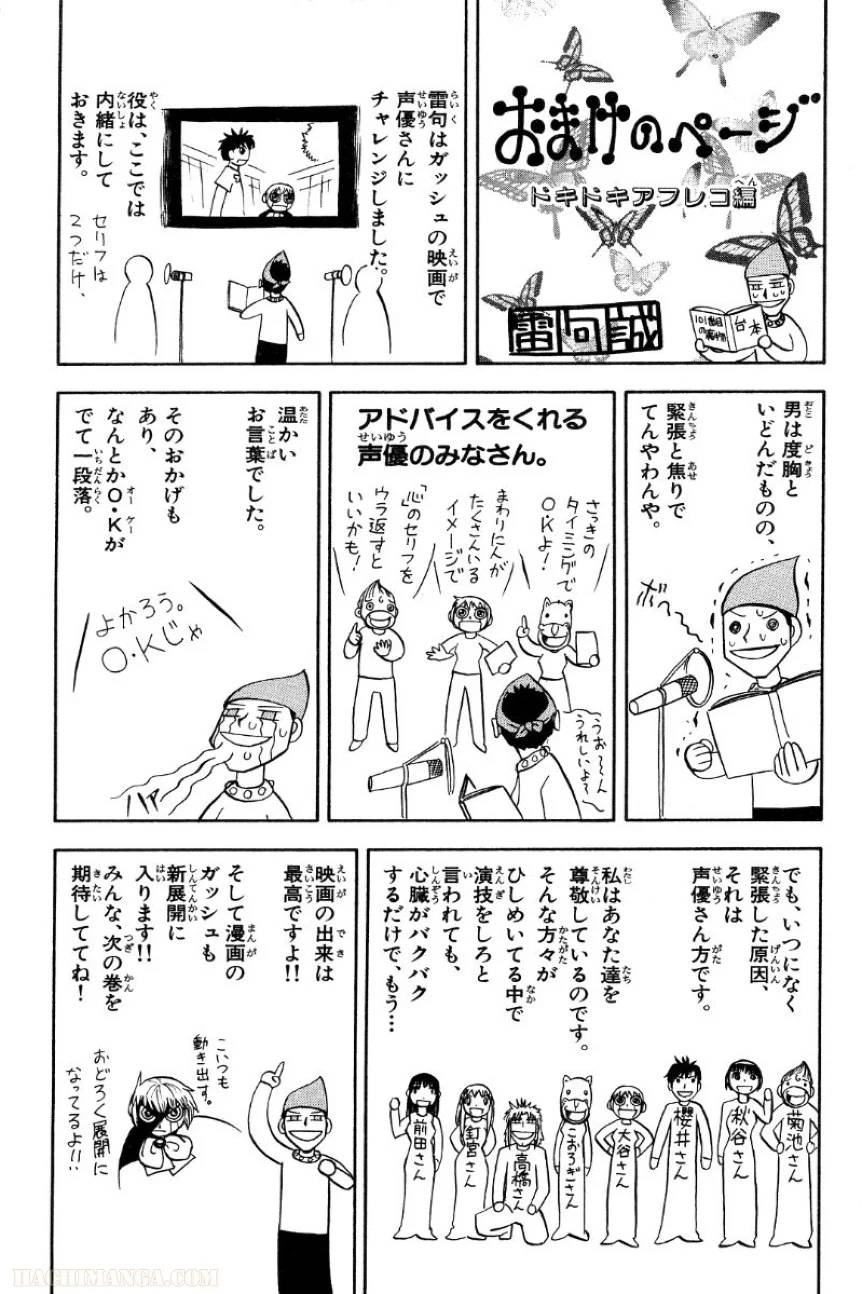 おまけのページ
ドキドキアフレコ編
雷句誠
101番目
の魔物
台本
雷句はガッシュの映画で
声優さんに
チャレンジしました。
役は、ここでは
内緒にして
おきます。
セリフは
2つだけ、
男は度胸と
いどんだものの、
緊張と焦りで
てんやわんや。
ボヘ〜
アドバイスをくれる
声優のみなさん。
さっきの
タイミングで
O・Kよ!
まわりに人が
たくさんいる
イメージで
「心」のセリフを
ウラ返すと
いいかも!
うお〜〜ん
うれしいよ〜
温かい
お言葉でした。
そのおかげも
あり、
なんとかO・Kが
でて一段落。
よかろう。
O・Kじゃ
ハァ
でも、いつになく
緊張した原因、
それは
声優さん方です。
私はあなた達を
尊敬しているのです。
そんな方々が
ひしめいてる中で
演技をしろと
言われても、
心臓がバクバク
するだけで、もう…
菊池さん
秋谷さん
櫻井さん
大谷さん
こおろぎさん
高橋さん
釘宮さん
前田さん
映画の出来は
最高ですよ!!
そして漫画の
ガッシュも
新展開に
入ります!!
みんな、次の巻を
期待しててね!
こいつも
動き出す。
おどろく展開に
なってるよ!!
HACHIMANGA.COM